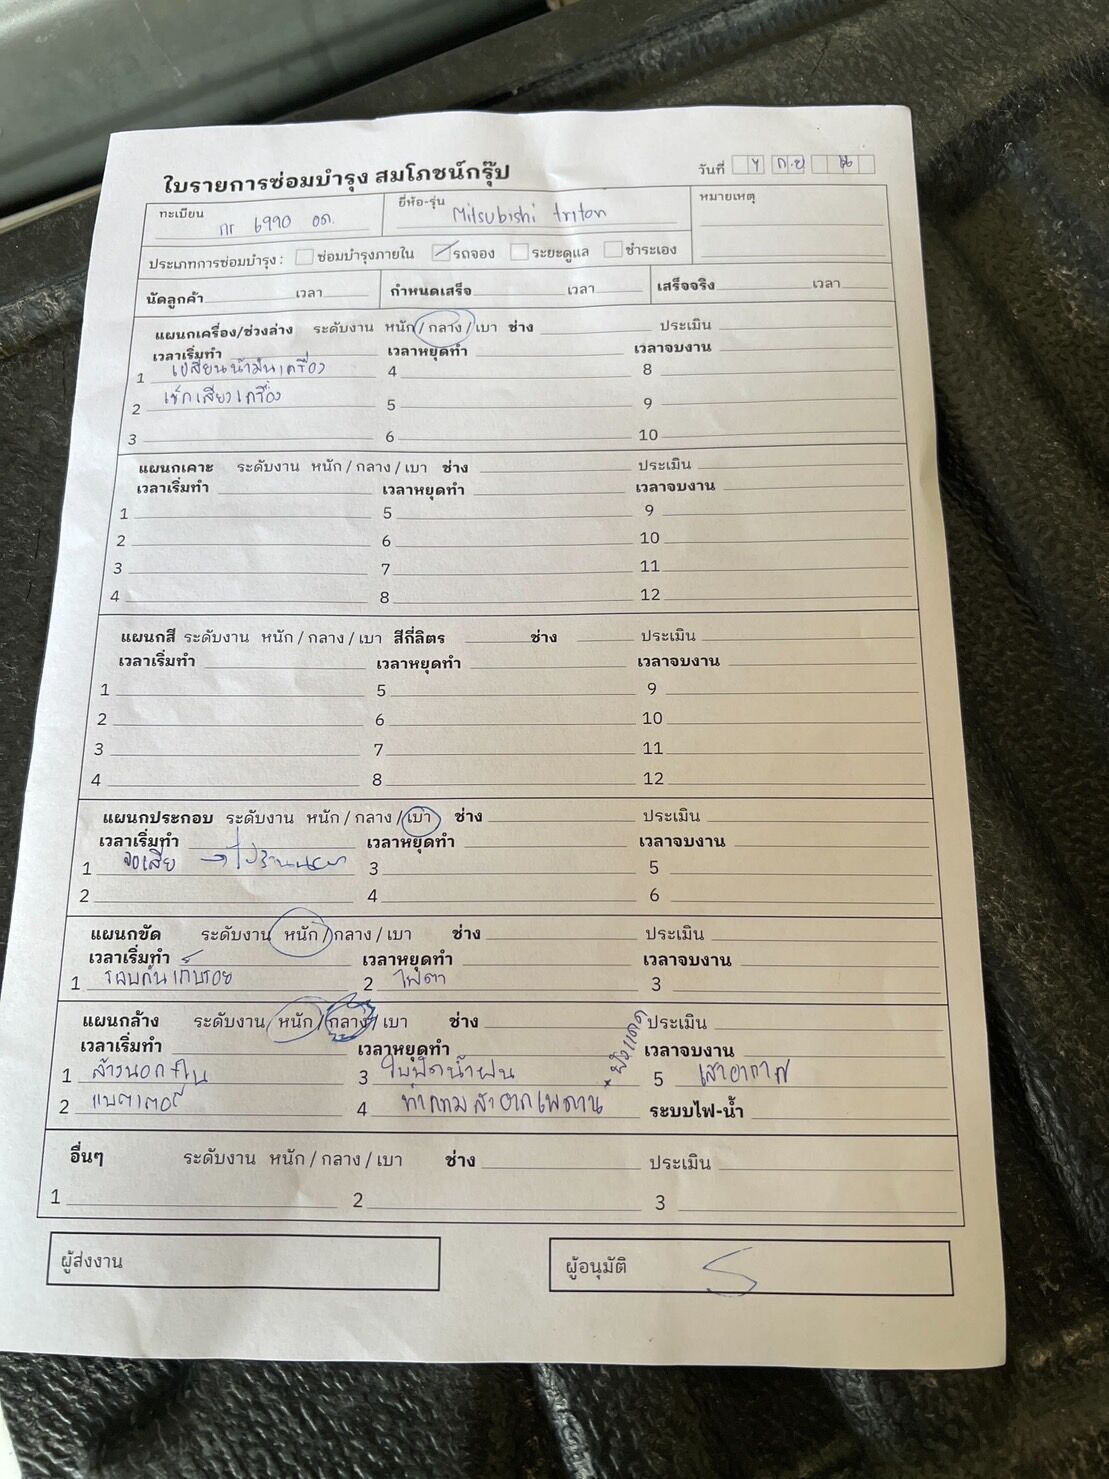 ใบรายการซ่อมบำรุง สมโภชน์กรุ๊ป
วันที่ ก.ย
ทะเบียน 6990 อด.
ยี่ห้อ-รุ่น Mitsubishi triton
หมายเหตุ
ประเภทการซ่อมบำรุง : ซ่อมบำรุงภายใน รถจอง ระยะดูแล ชำระเอง
นัดลูกค้า เวลา กำหนดเสร็จ เวลา เสร็จจริง เวลา
แผนกเครื่อง/ช่วงล่าง ระดับงาน หนัก / กลาง / เบา ช่าง ประเมิน
เวลาเริ่มทำ เวลาหยุดทำ เวลาจบงาน
1 เปลี่ยนน้ำมันเครื่อง 4 8
2 เช็กเสียงเครื่อง 5 9
3 6 10
แผนกเคาะ ระดับงาน หนัก / กลาง / เบา ช่าง ประเมิน
เวลาเริ่มทำ เวลาหยุดทำ เวลาจบงาน
1 5 9
2 6 10
3 7 11
4 8 12
แผนกสี ระดับงาน หนัก / กลาง / เบา สีกี่ลิตร ช่าง ประเมิน
เวลาเริ่มทำ เวลาหยุดทำ เวลาจบงาน
1 5 9
2 6 10
3 7 11
4 8 12
แผนกประกอบ ระดับงาน หนัก / กลาง / เบา ช่าง ประเมิน
เวลาเริ่มทำ เวลาหยุดทำ เวลาจบงาน
1 จอเสีย → 3 5
2 4 6
แผนกขัด ระดับงาน หนัก / กลาง / เบา ช่าง ประเมิน
เวลาเริ่มทำ เวลาหยุดทำ เวลาจบงาน
1 รอบคันเก็บรอย 2 ไฟตา 3
แผนกล้าง ระดับงาน หนัก / กลาง / เบา ช่าง ประเมิน
เวลาเริ่มทำ เวลาหยุดทำ เวลาจบงาน
1 ล้างนอกใน 3 ใบปัดน้ำฝน 5 เสาอากาศ
2 แบตเตอรี่ 4 ระบบไฟ-น้ำ
อื่นๆ ระดับงาน หนัก / กลาง / เบา ช่าง ประเมิน
1 2 3
ผู้ส่งงาน ผู้อนุมัติ